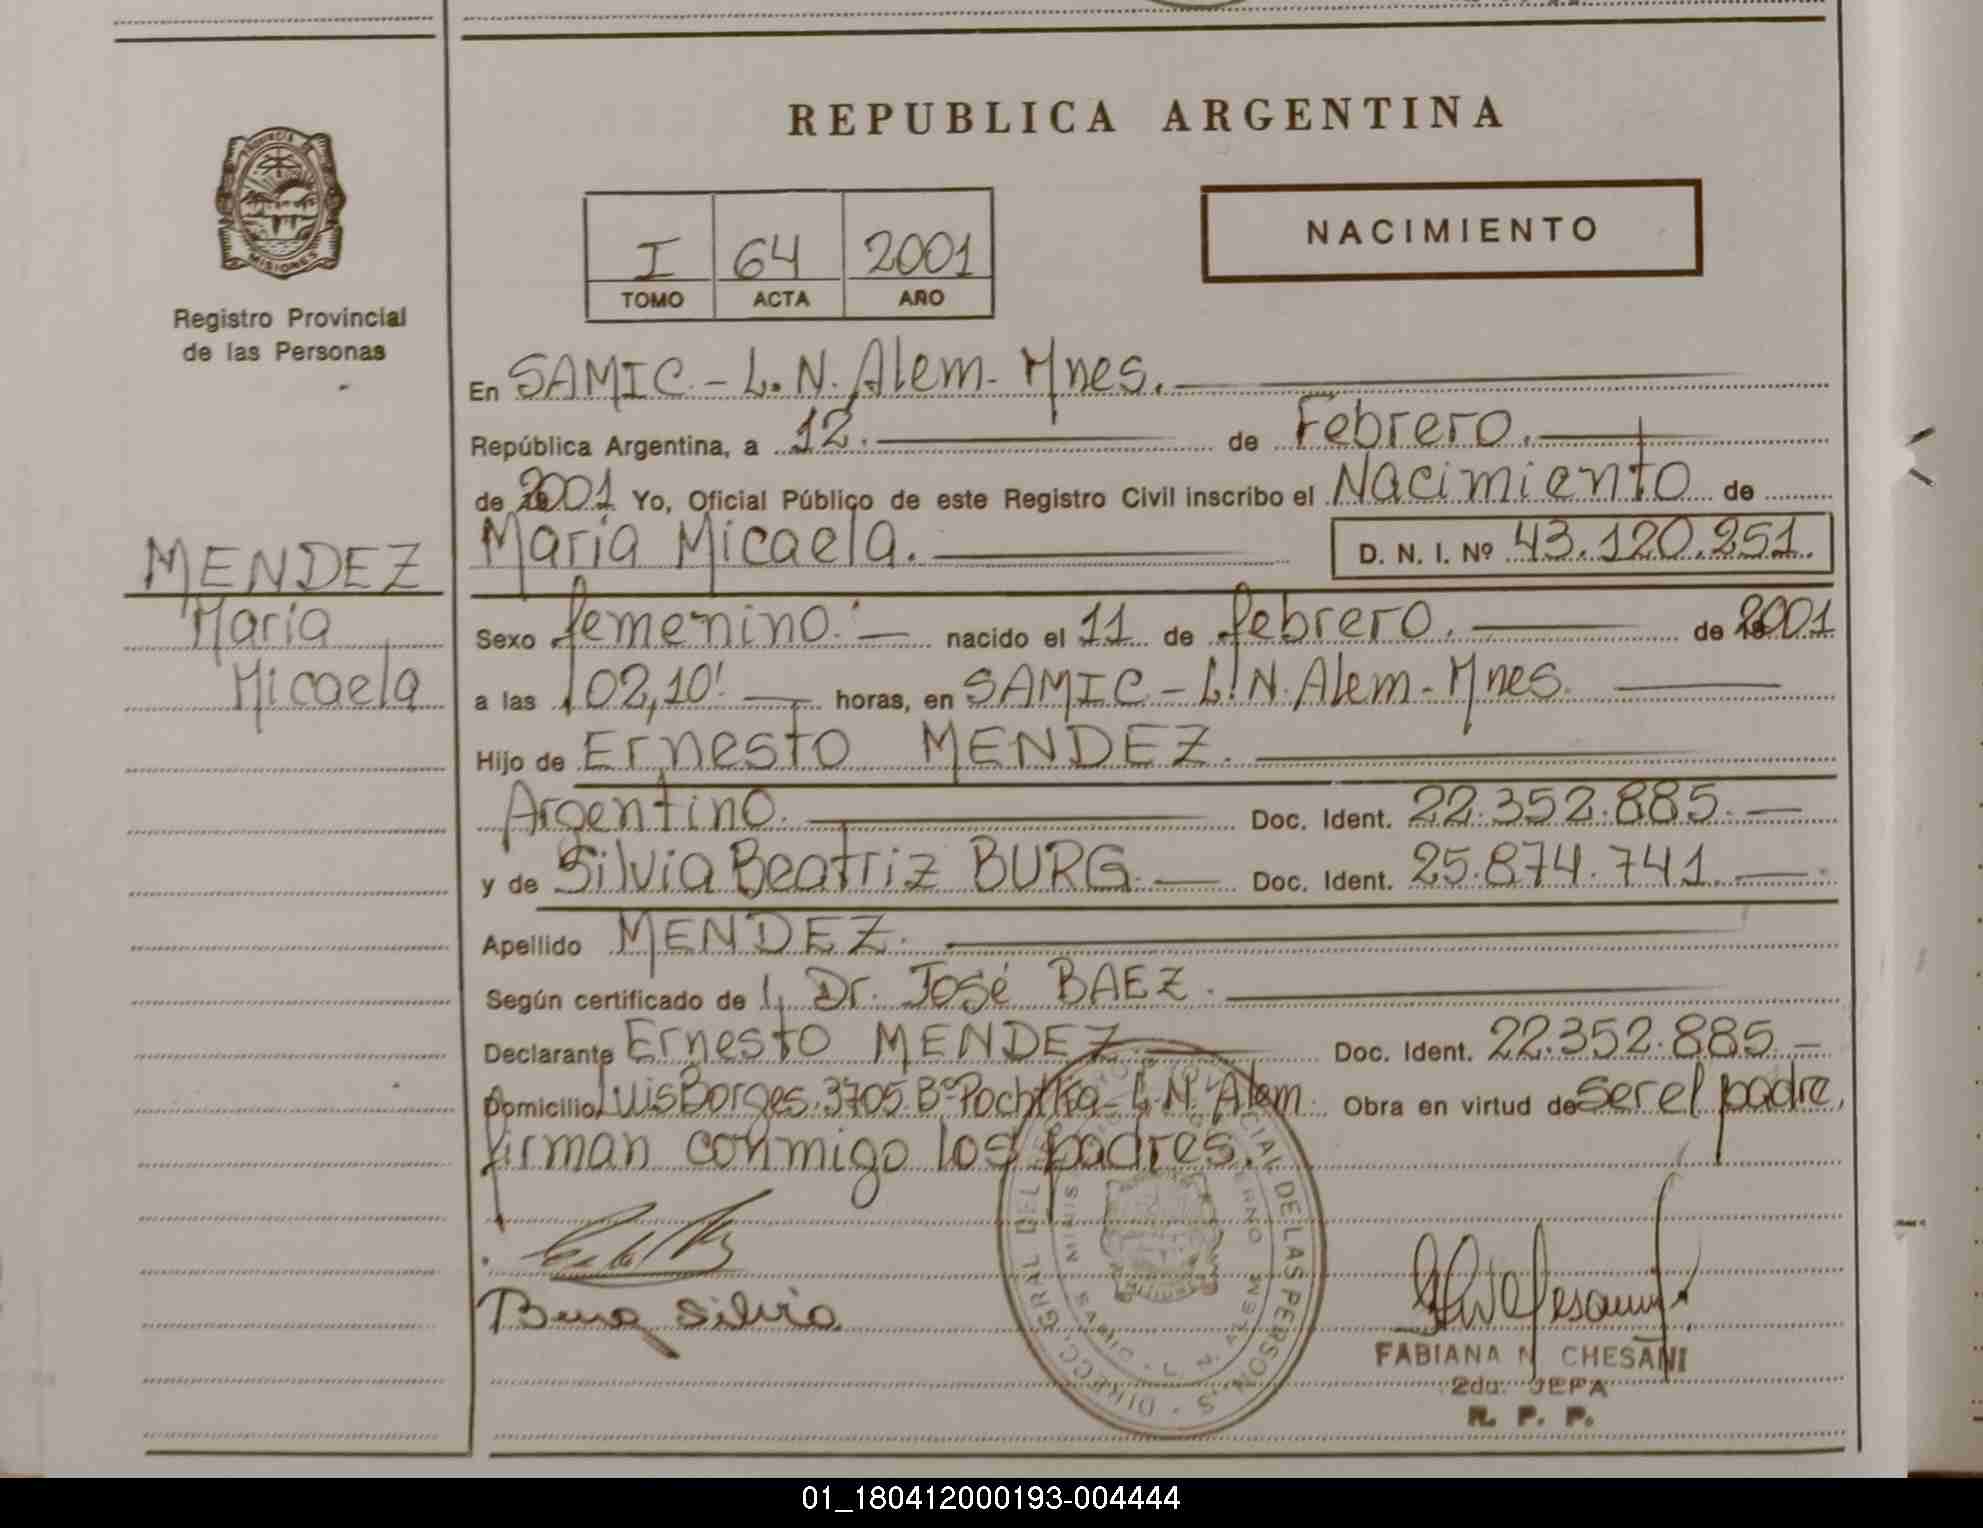 REPUBLICA ARGENTINA
PROVINCIA DE
MISIONES
Registro Provincial
de las Personas
I 64 2001
TOMO ACTA AÑO
NACIMIENTO
En SAMIC.- L. N. Alem- Mnes.
República Argentina, a 12. de Febrero.
de 2001 Yo, Oficial Público de este Registro Civil inscribo el Nacimiento de
María Micaela. D. N. I. Nº 43.120.251.
MENDEZ
María
Micaela
Sexo femenino.- nacido el 11 de febrero. de 2001
a las 02,10'. horas, en SAMIC - L. N. Alem - Mnes.
Hijo de Ernesto MENDEZ.
Argentino. Doc. Ident. 22.352.885.-
y de Silvia Beatriz BURG.- Doc. Ident. 25.874.741.-
Apellido MENDEZ.
Según certificado de l, Dr. José BAEZ.
Declarante Ernesto MENDEZ Doc. Ident. 22.352.885.-
Domicilio Luis Borges 3705 Bº L. N. Alem Obra en virtud de ser el padre,
firman conmigo los padres.
Burg Silvia
FABIANA N CHESANI
2da. JEFA
R. P. P.
01_180412000193-004444